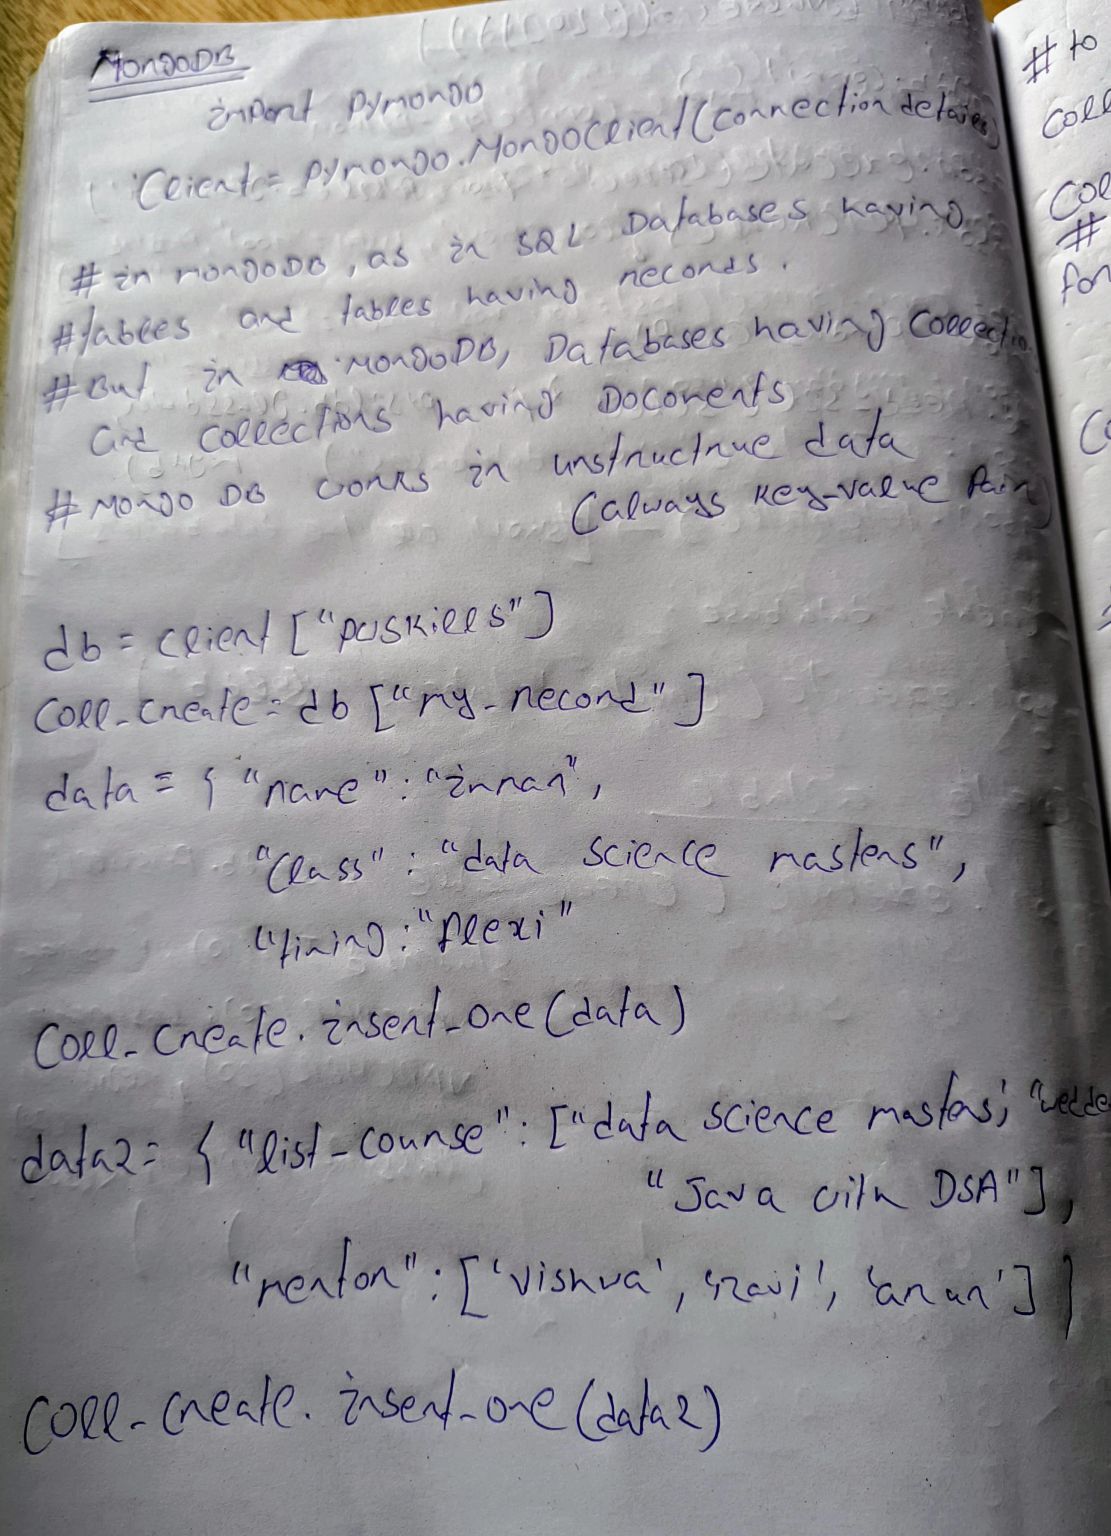 MongoDB
import pymongo
Client = pymongo.MongoClient(connection details)
# in mongoDB, as in SQL Databases having
# tables and tables having records.
# But in MongoDB, Databases having collection
and collections having Documents
# Mongo DB works in unstructrue data
(always key-value Pair)
db = client ["pwskills"]
Coll_Create = db ["my_record"]
data = { "name" : "imran",
"Class" : "data science masters",
"timing : "flexi"
Coll_Create.insert_one(data)
data2 = { "list_course" : ["data science masters",
"Java with DSA"],
"mentor" : ['vishva', 'ravi', 'arun'] }
Coll_Create.insert_one(data2)
# to
Coll
Col
#
for